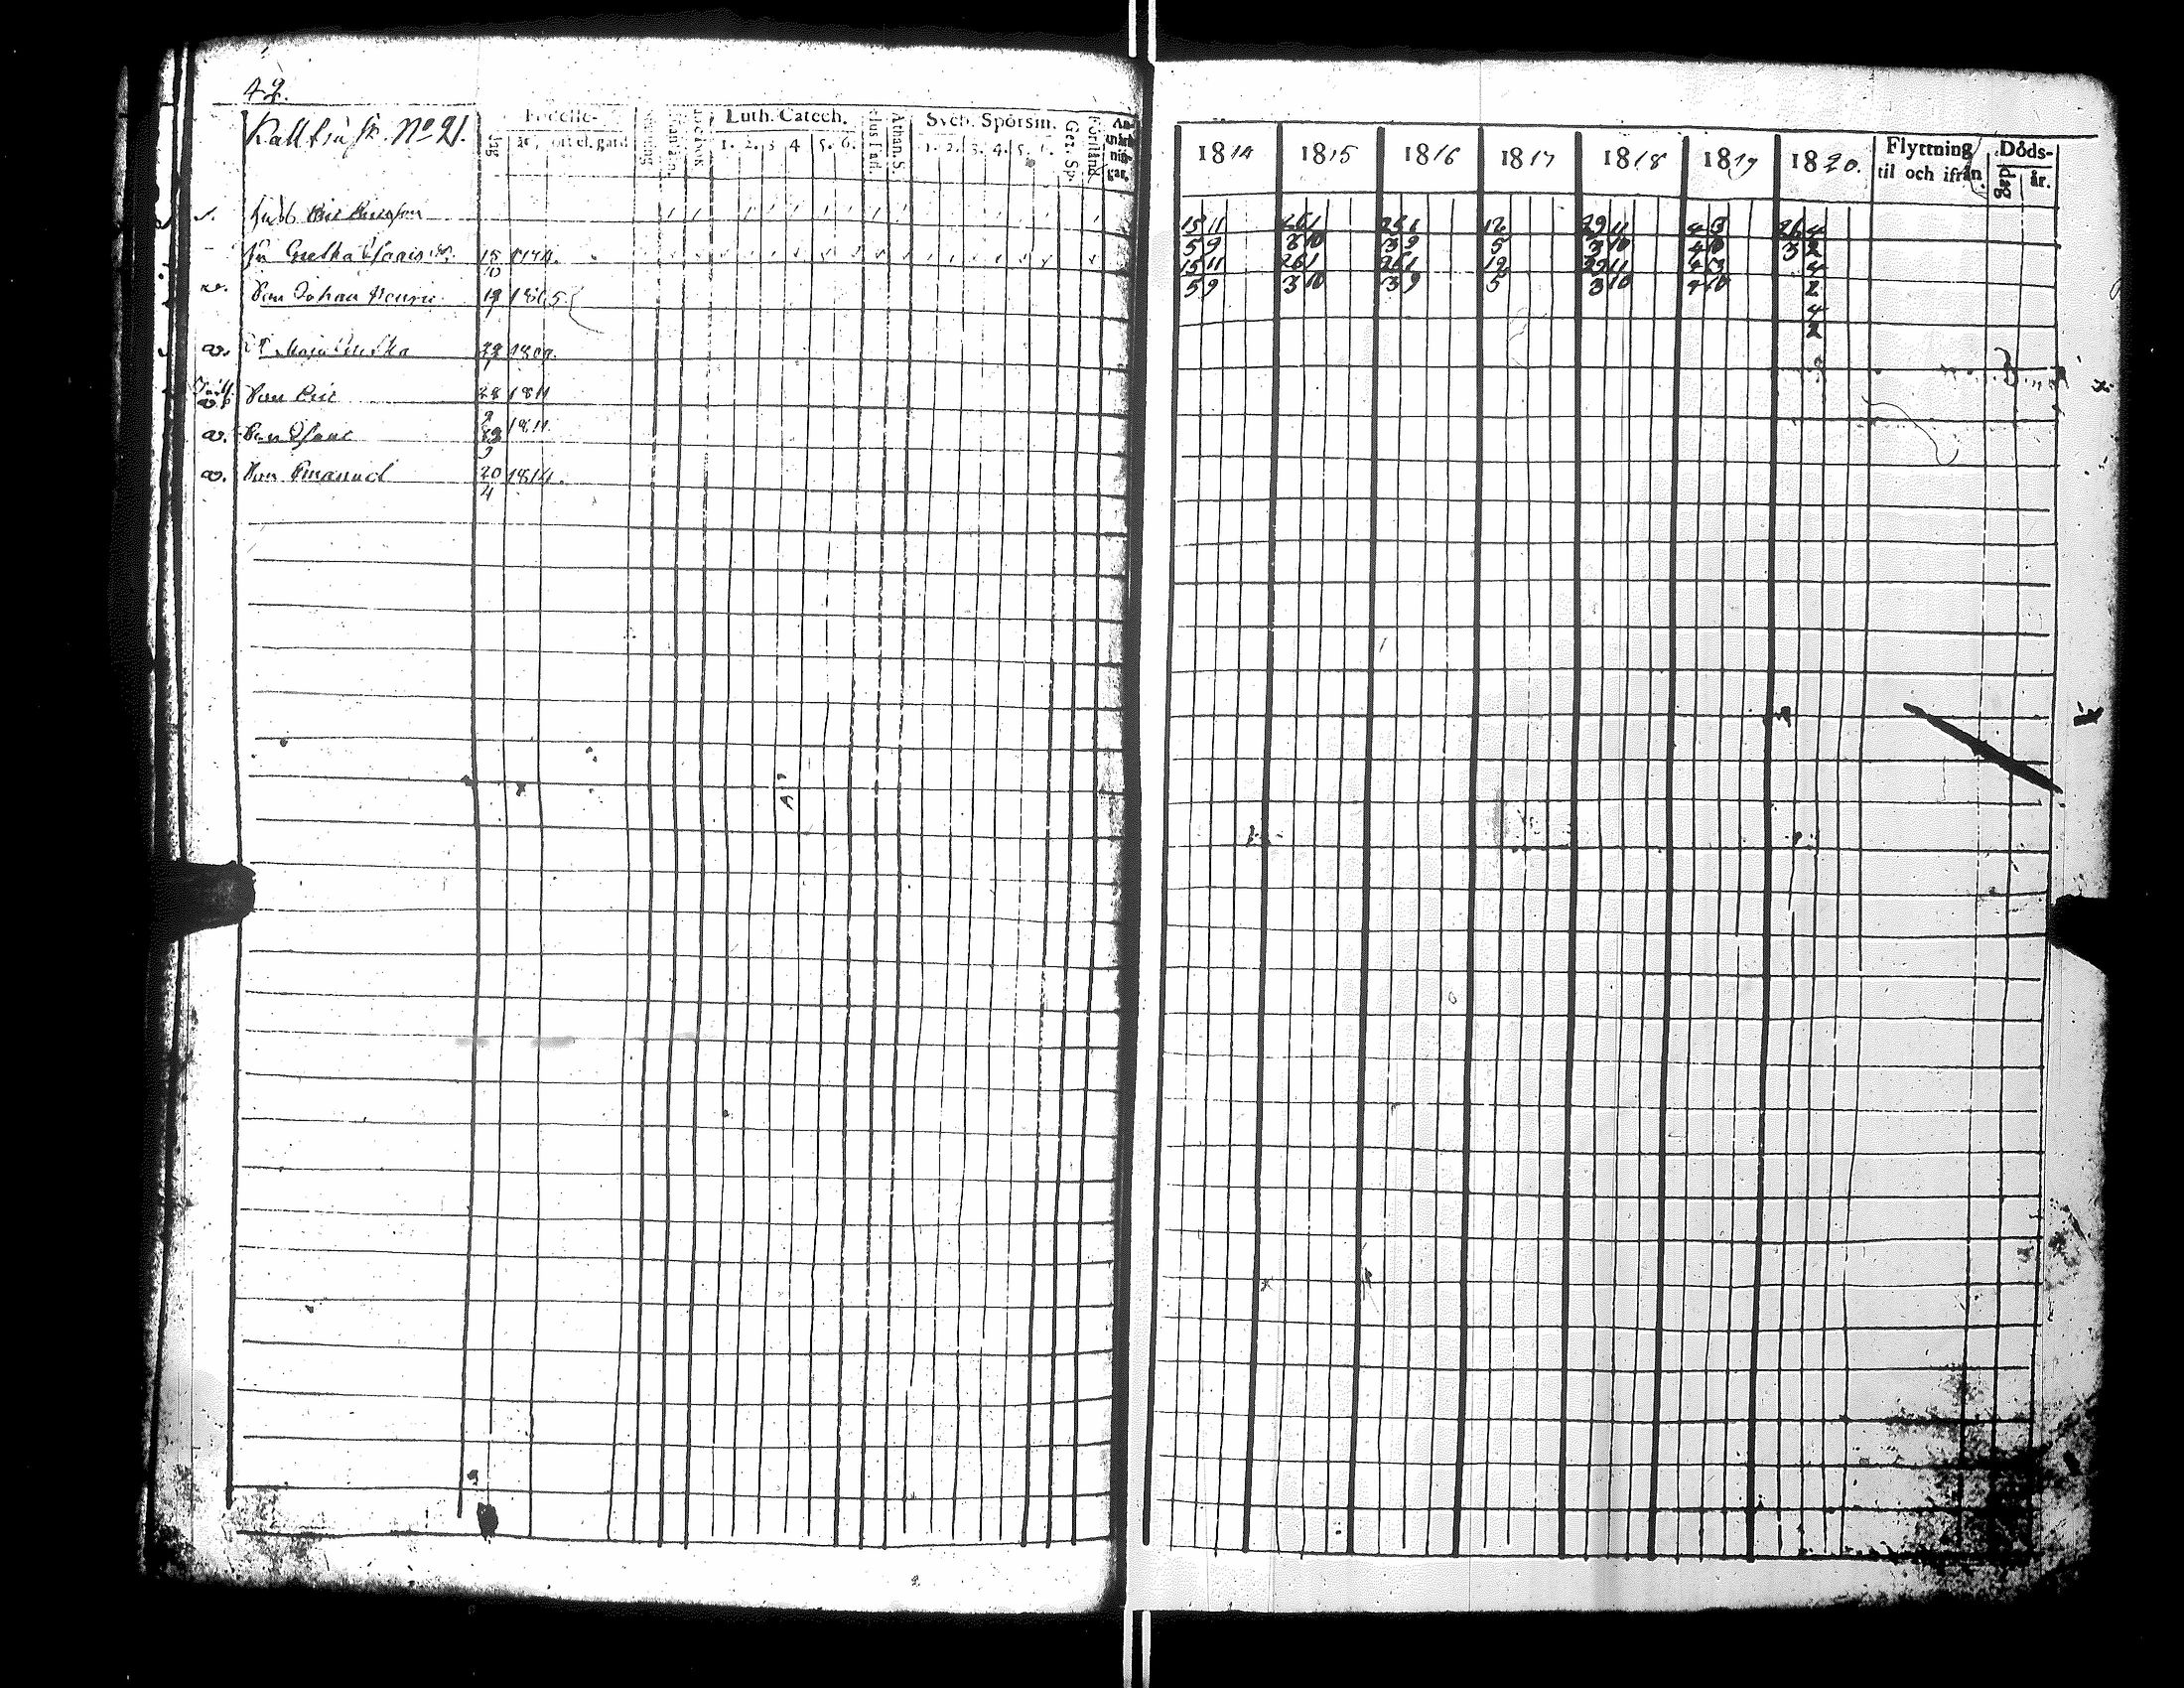 42.
Kallträsk. No 21.
Födelse-
dag
år, ort el. gård
Luth. Catech.
1. 2. 3 4 5. 6.
Hus Tafl.
Athan. S.
Sveb. Spörsm.
1. 2. 3. 4. 5. 6.
Ger. Sp.
Förstånd
An-
märk-
nin-
gar.
1814 1815 1816 1817 1818 1819 1820.
Flyttning
til och ifrån.
Döds-
dag år.
Eric Ericsson
hu Gretha Isaacs d. 15/10 1774.
Son Johan Henric 19/1 1805
Dr Maja Greta 1809.
Son Eric 28 1811
Son Isaac 1811
Son Emanuel 20/4 1814.
15 11 26 1 12 29 11 4 3 26 4
5 9 3 10 3 9 5 3 10 4 10 3 2
15 11 26 1 26 1 12 29 11 4 3 4
5 9 3 10 3 9 5 3 10 4 10 2
4
2